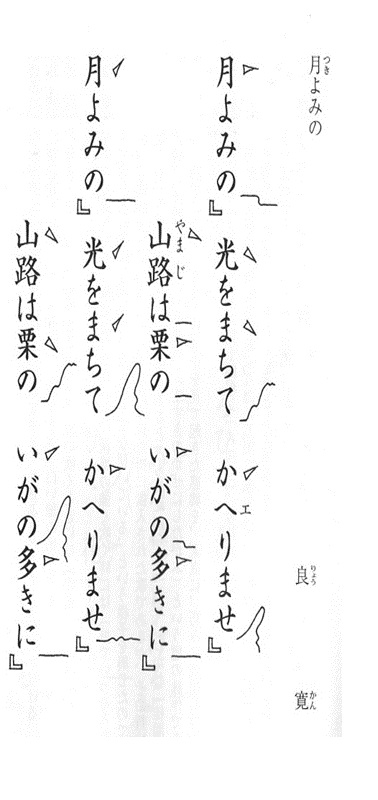 月よみの
良寛
月よみの』光をまちてかへりませ』
山路は栗のいがの多きに』
月よみの』光をまちてかへりませ』
山路は栗のいがの多きに』